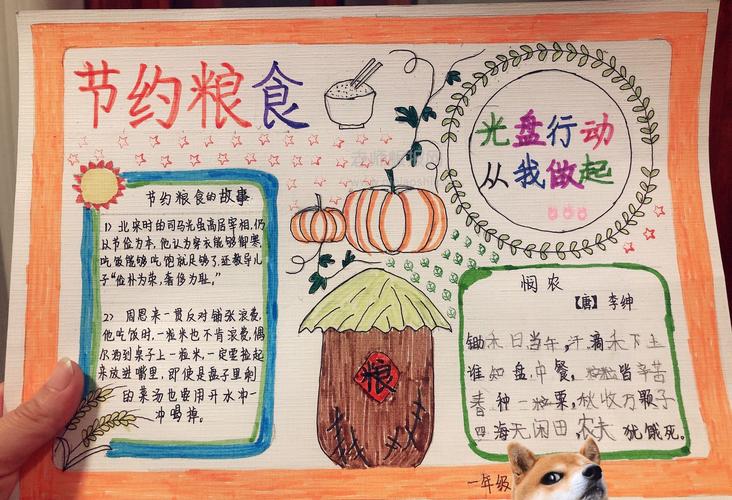 节约粮食
光盘行动
从我做起
节约粮食的故事
1）北宋时的司马光虽高居宰相,仍
从节俭为本,他认为穿衣能够御寒,
吃饭能够吃饱就足够了,还教导儿
子“俭朴为荣,奢侈为耻。”
2）周恩来一贯反对铺张浪费,
他吃饭时,一粒米也不肯浪费,偶
尔汤到桌子上一粒米,一定要捡起
来放进嘴里,即使是盘子里剩
的菜汤也要用开水冲一
冲喝掉。
粮
悯农
【唐】李绅
锄禾日当午,汗滴禾下土
谁知盘中餐,粒粒皆辛苦
春种一粒粟,秋收万颗子
四海无闲田 农夫犹饿死。
一年级